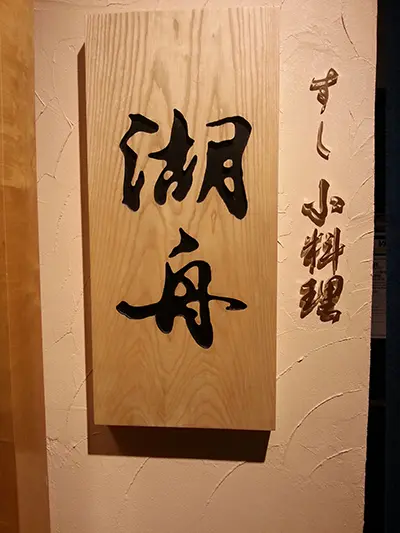 すし 小料理
湖舟